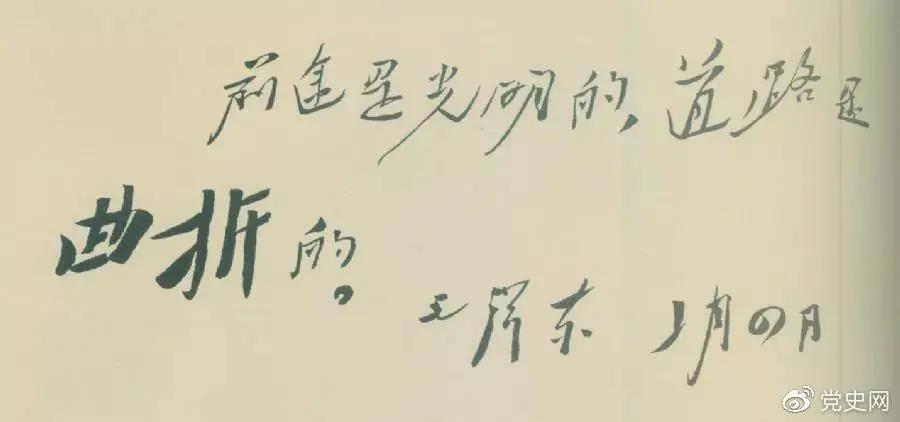 前途是光明的,道路是
曲折的。
毛泽东 一月四日
党史网